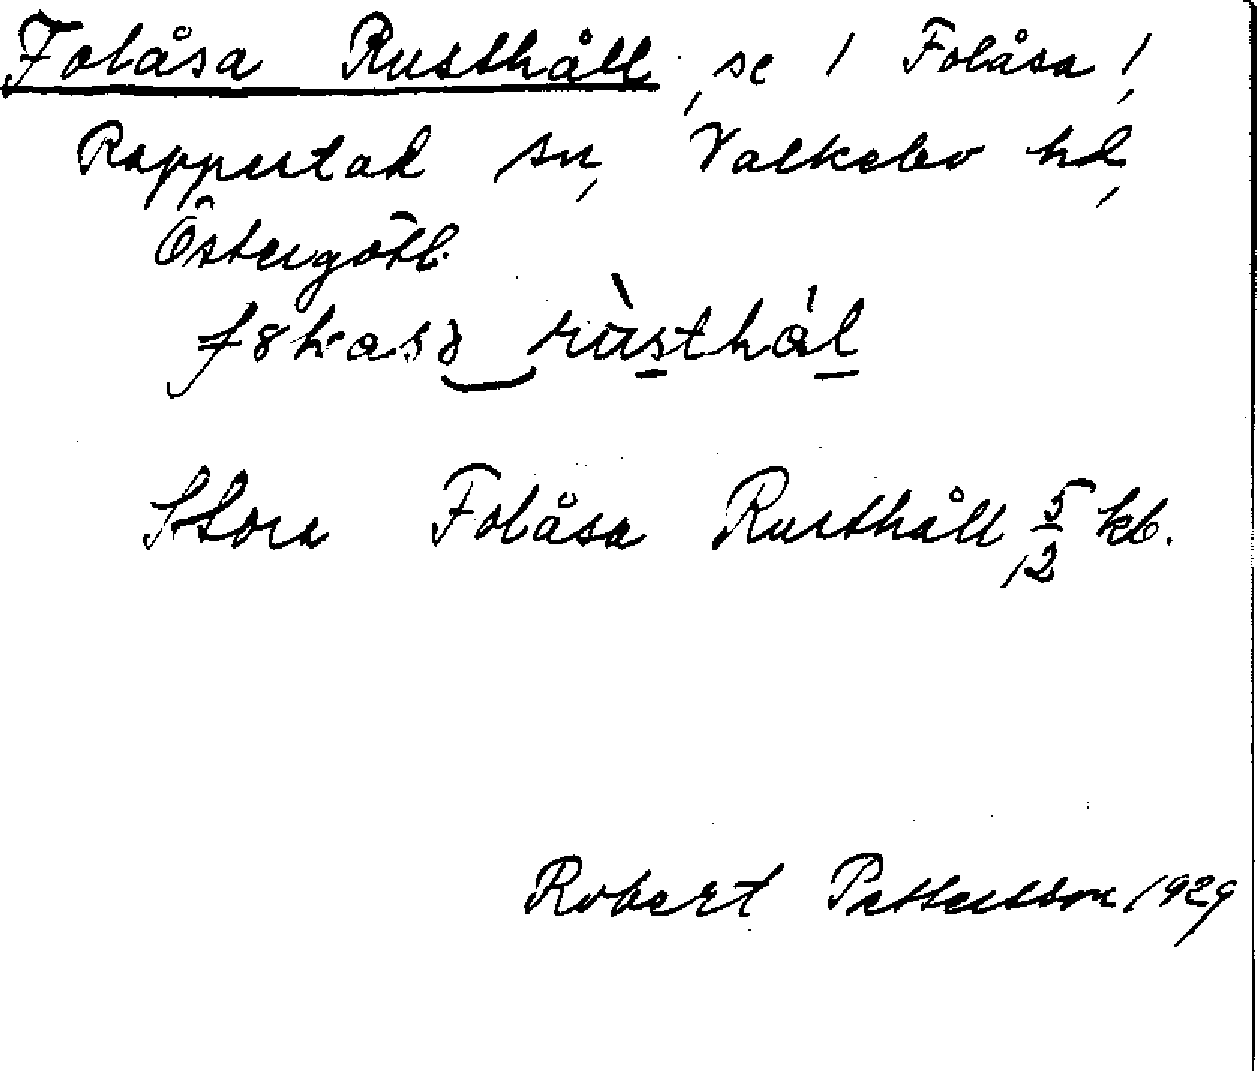 Folåsa Rusthåll, se / Folåsa /,
Rappestad sn, Valkebo hd,
Östergötl.
rùsthál
Stora Folåsa Rusthåll, 5/2 kb.
Robert Pettersson 1929